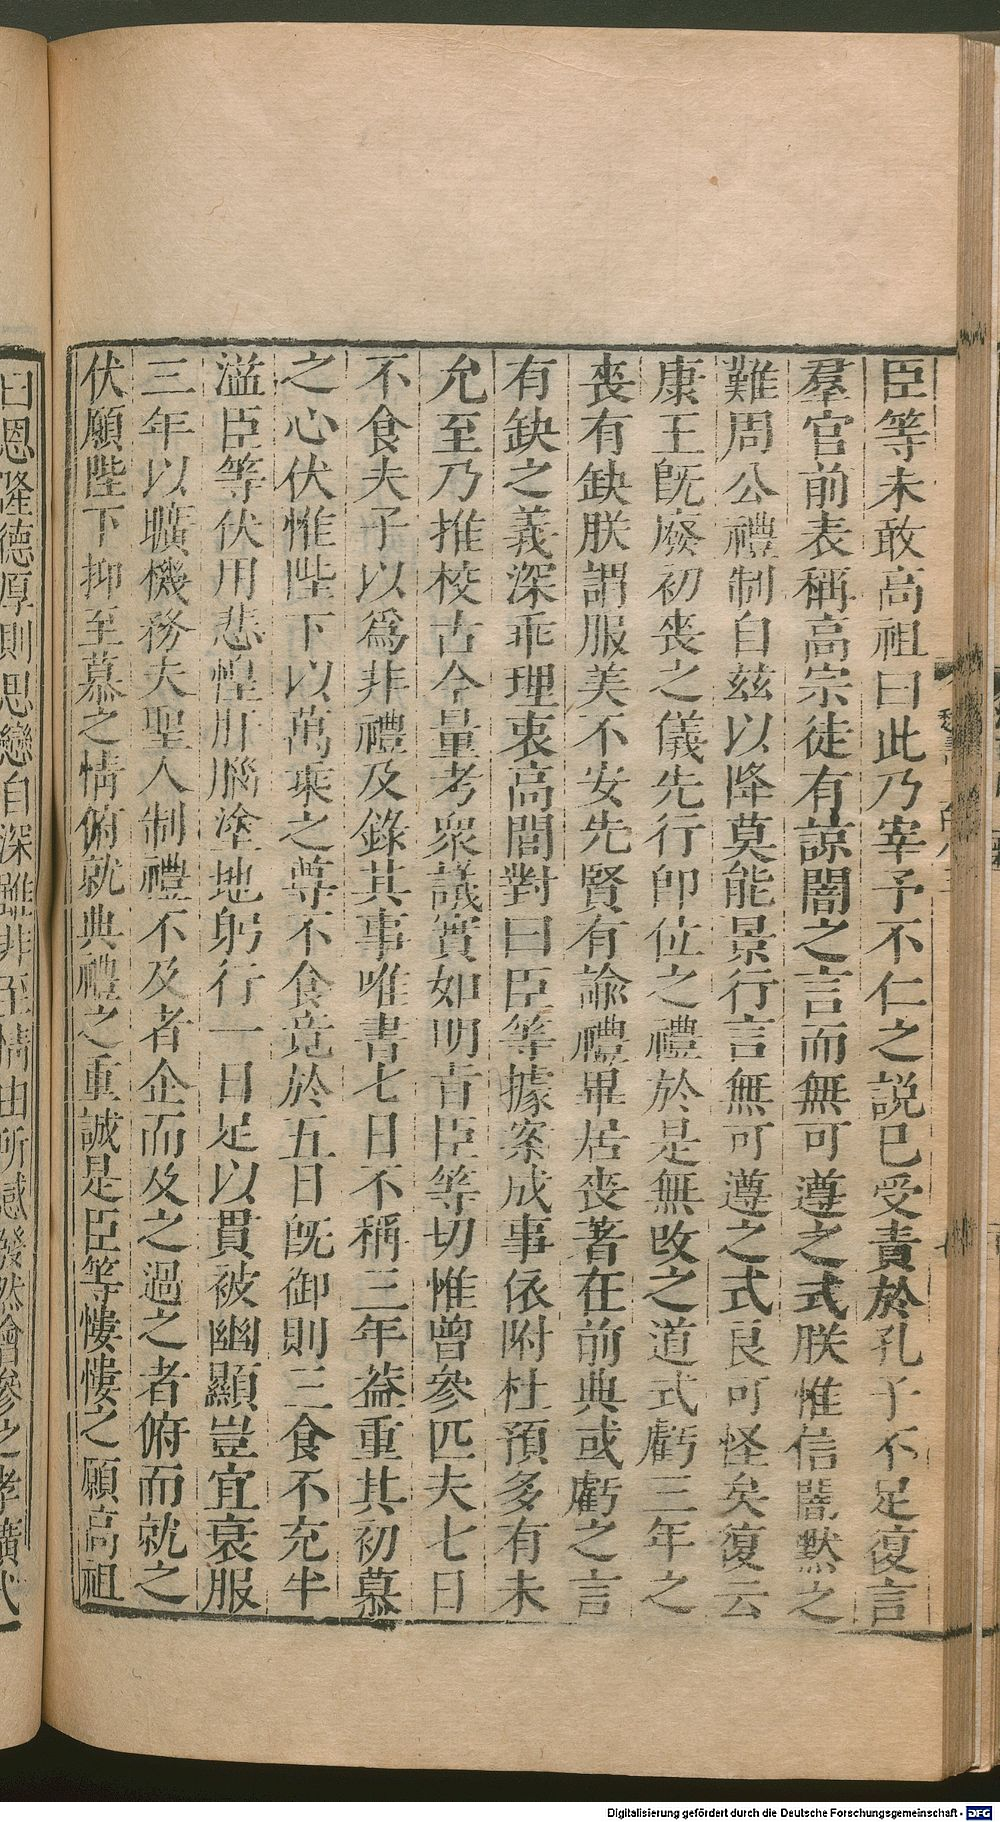 臣等未敢高祖曰此乃宰予不仁之説已受責於孔子不足復言
羣官前表稱高宗徒有諒闇之言而無可遵之式朕惟信闇默之
難周公禮制自兹以降莫能景行言無可遵之式良可怪矣復云
康王旣廢初喪之儀先行即位之禮於是無改之道式虧三年之
喪有缺朕謂服美不安先賢有諭禮畢居喪著在前典或虧之言
有缺之義深乖理衷高閭對曰臣等據案成事依附杜預多有未
允至乃推校古今量考衆議實如明旨臣等切惟曾參匹夫七日
不食夫子以爲非禮及錄其事唯書七日不稱三年葢重其初慕
之心伏惟陛下以萬乘之尊不食竟於五日旣御則三食不充半
溢臣等伏用悲惶肝腦塗地躬行一日足以貫被幽顯豈宜衰服
三年以曠機務夫聖人制禮不及者企而及之過之者俯而就之
伏願陛下抑至慕之情俯就典禮之重誠是臣等慺慺之願高祖
曰恩隆德厚則思戀自深雖非至情由所感發然曾參之孝曠代
Digitalisierung gefördert durch die Deutsche Forschungsgemeinschaft - DFG